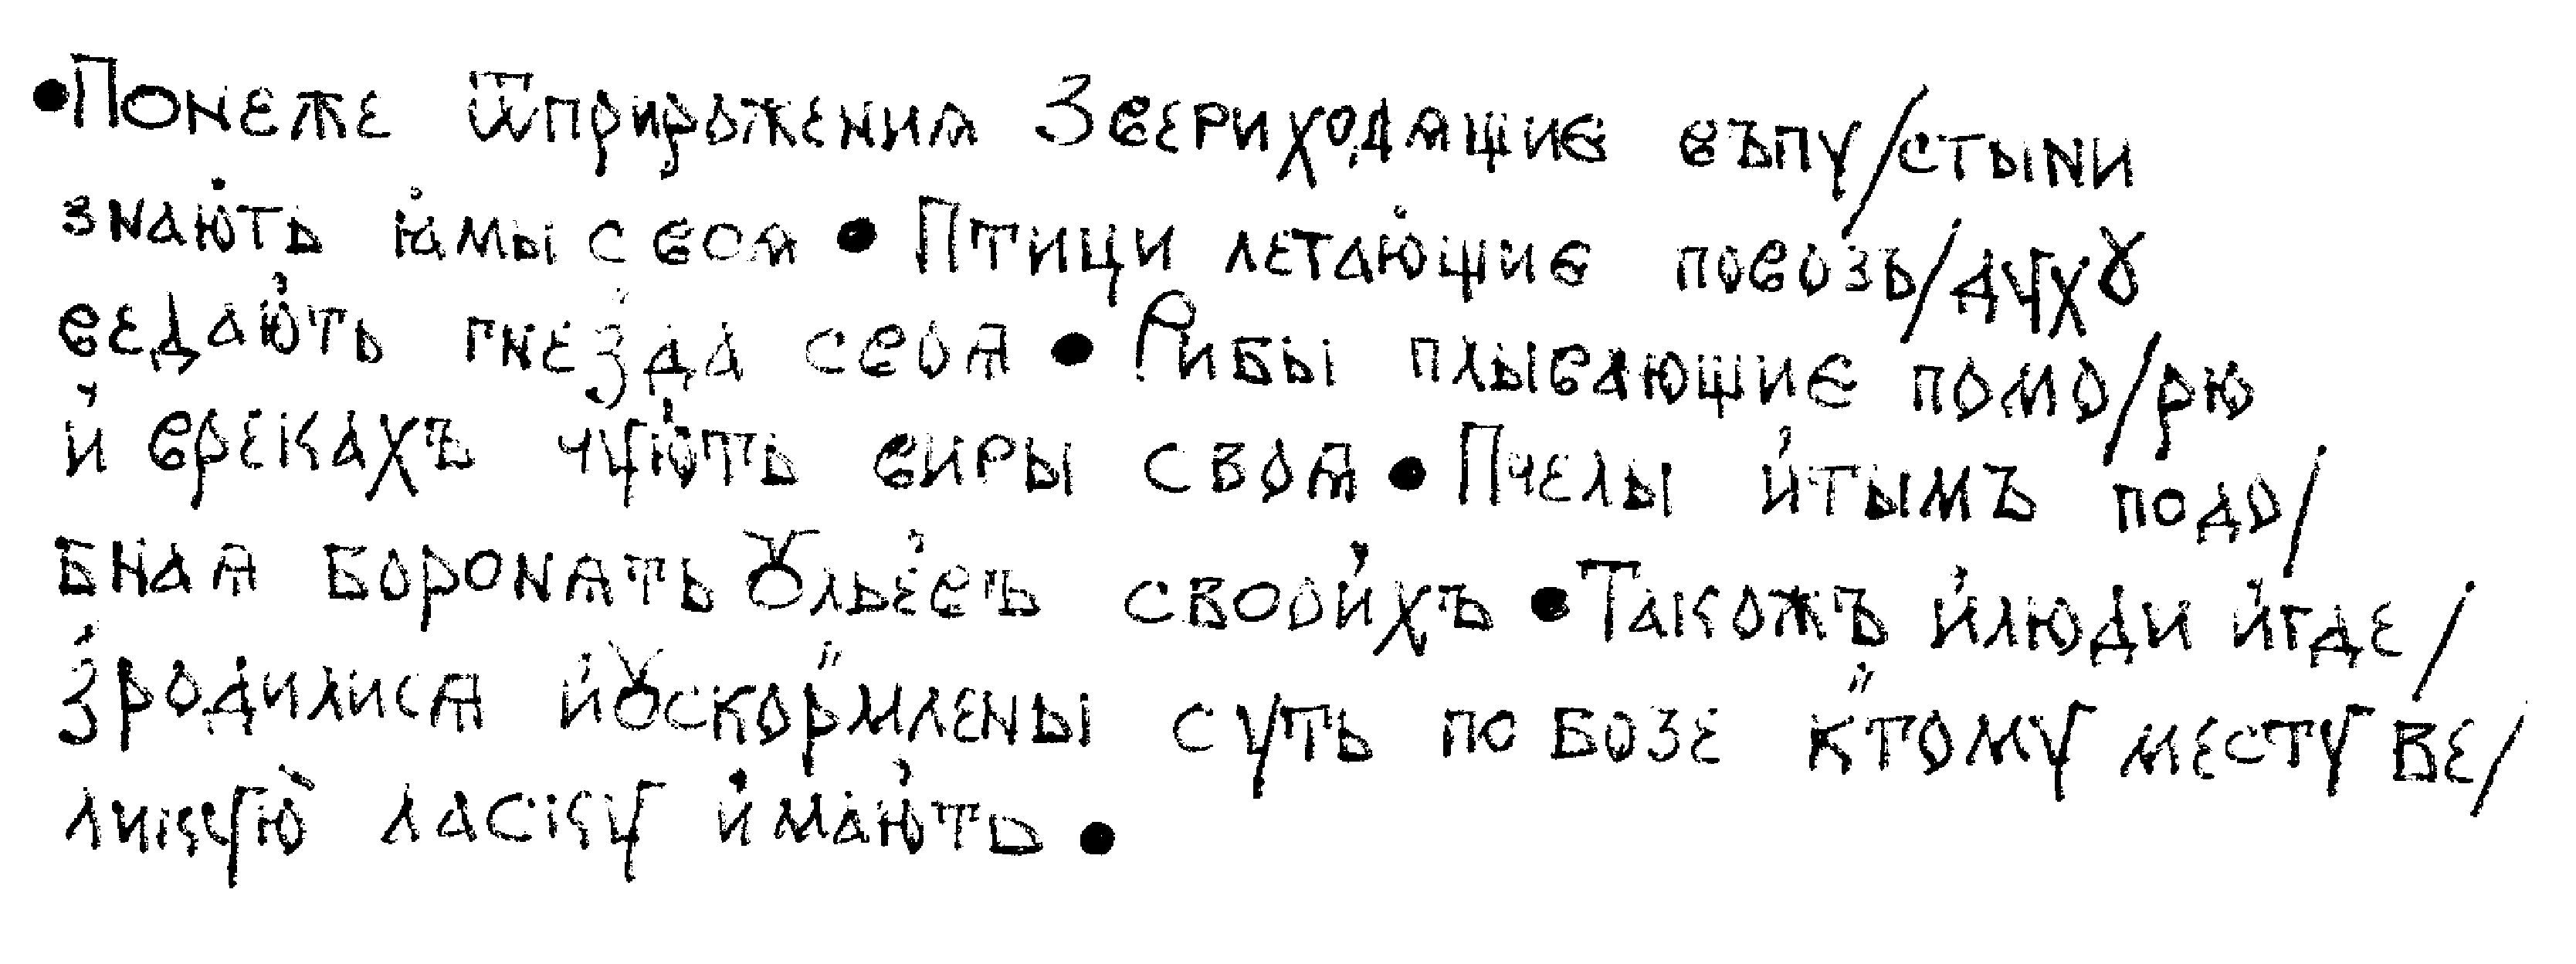 •Понеже ѿприрожениꙗ Звериходѧщие въпу/стыни
знають ꙗмы своѧ • Птици летающие повозъ/духꙋ
ведають гнезда своѧ • Рибы плывающие помо/рю
и врекахъ чують виры своѧ • Пчелы итымъ подо/
бнаѧ боронѧть ꙋльевъ своихъ • Такожъ илюди игде/
зродилисѧ иꙋскормлены суть по бозе ктому месту ве/
ликую ласку имають •